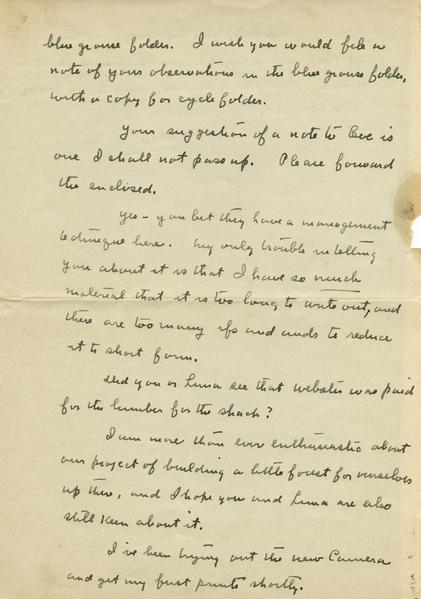 blue grouse folder. I wish you would file a
note of your observations in the blue grouse folder,
with a copy for cycle folder.
Your suggestion of a note to Eve is
one I shall not pass up. Please forward
the enclosed.
Yes - you bet they have a management
technique here. My only trouble in telling
you about it is that I have so much
material that it is too long to write out, and
there are too many ifs and ands to reduce
it to short form.
Did you or Luna see that Webster was paid
for the lumber for the shack?
I am more than ever enthusiastic about
our project of building a little forest for ourselves
up there, and I hope you and Luna are also
still keen about it.
I've been trying out the new Camera
and get my first prints shortly.